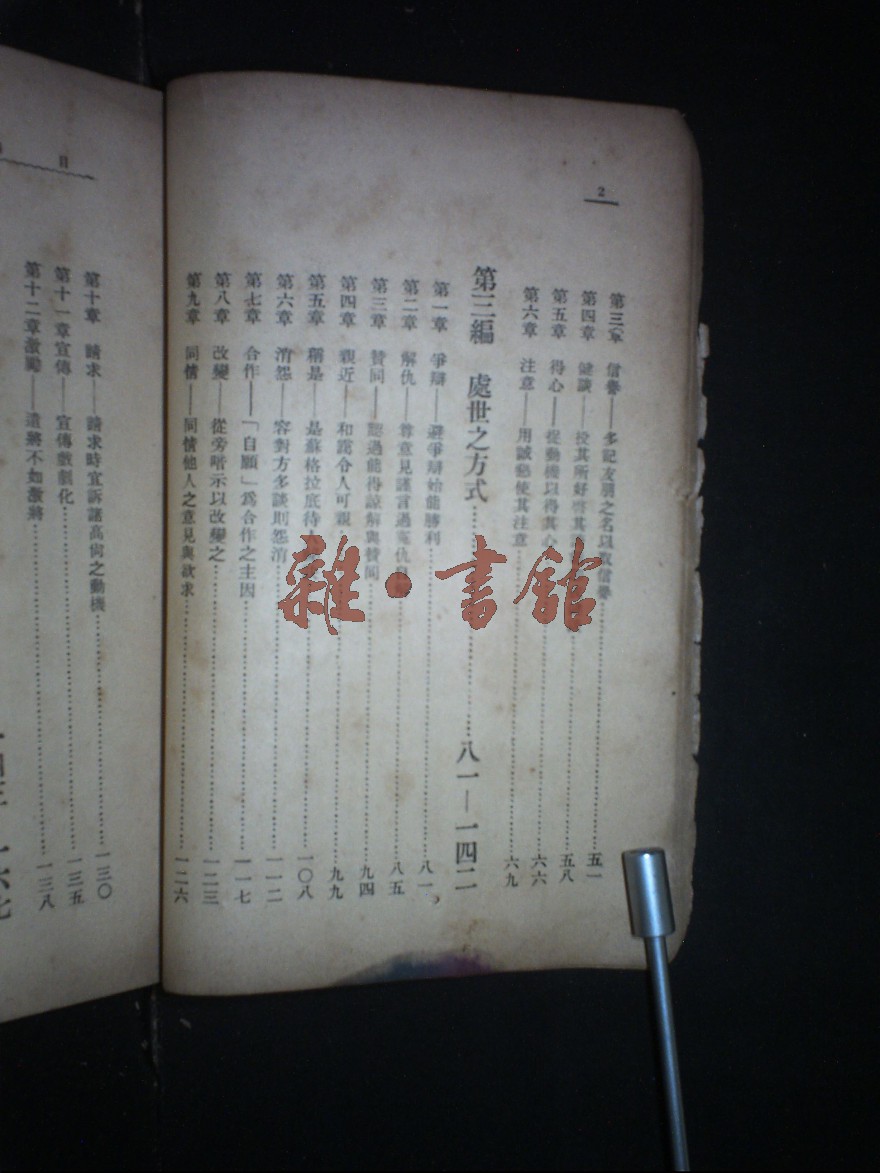 2
第三章 信譽——多記友朋之名以取信譽……五一
第四章 健談——投其所好啓其……五八
第五章 得心——從動機以得其心……六六
第六章 注意——用誠懇使其注意……六九
第三編 處世之方式……八一—一四二
第一章 爭辯——避爭辯始能勝利……八一
第二章 解仇——尊意見謹言過寃仇……八五
第三章 贊同——認過能得諒解與贊同……九四
第四章 親近——和藹令人可親……九九
第五章 稱是——是蘇格拉底待人……一〇八
第六章 消怨——容對方多談則怨消……一一二
第七章 合作——「自願」爲合作之主因……一一七
第八章 改變——從旁暗示以改變之……一二三
第九章 同情——同情他人之意見與欲求……一二六
目
第十章 請求——請求時宜訴諸高尚之動機……一三〇
第十一章 宣傳——宣傳戲劇化……一三五
第十二章 激勵——遣將不如激將……一三八
雜·書館